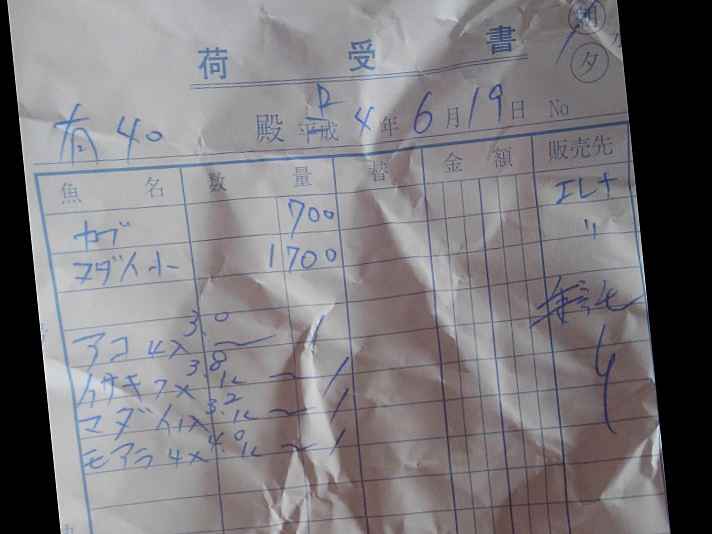 荷受書
夕
有 40 殿 平成 R 4年 6月 19日 No
魚名 数量 替 金額 販売先
カブ 700 エレナ
マダイ小 1700 〃
アコ 4入 3.0 〜 1
イサキ 7入 3.8 K 〜 1
マダイ 1入 3.2 K 〜 1
モアラ 4入 4.0 K 〜 1